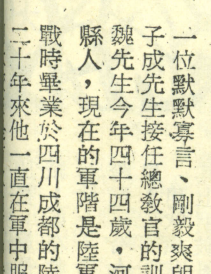 一位默默寡言、剛毅爽
子成先生接任總教官的訓
魏先生今年四十四歲，河
縣人，現在的軍階是陸軍
戰時畢業於四川成都的陸
二十年來他一直在軍中服